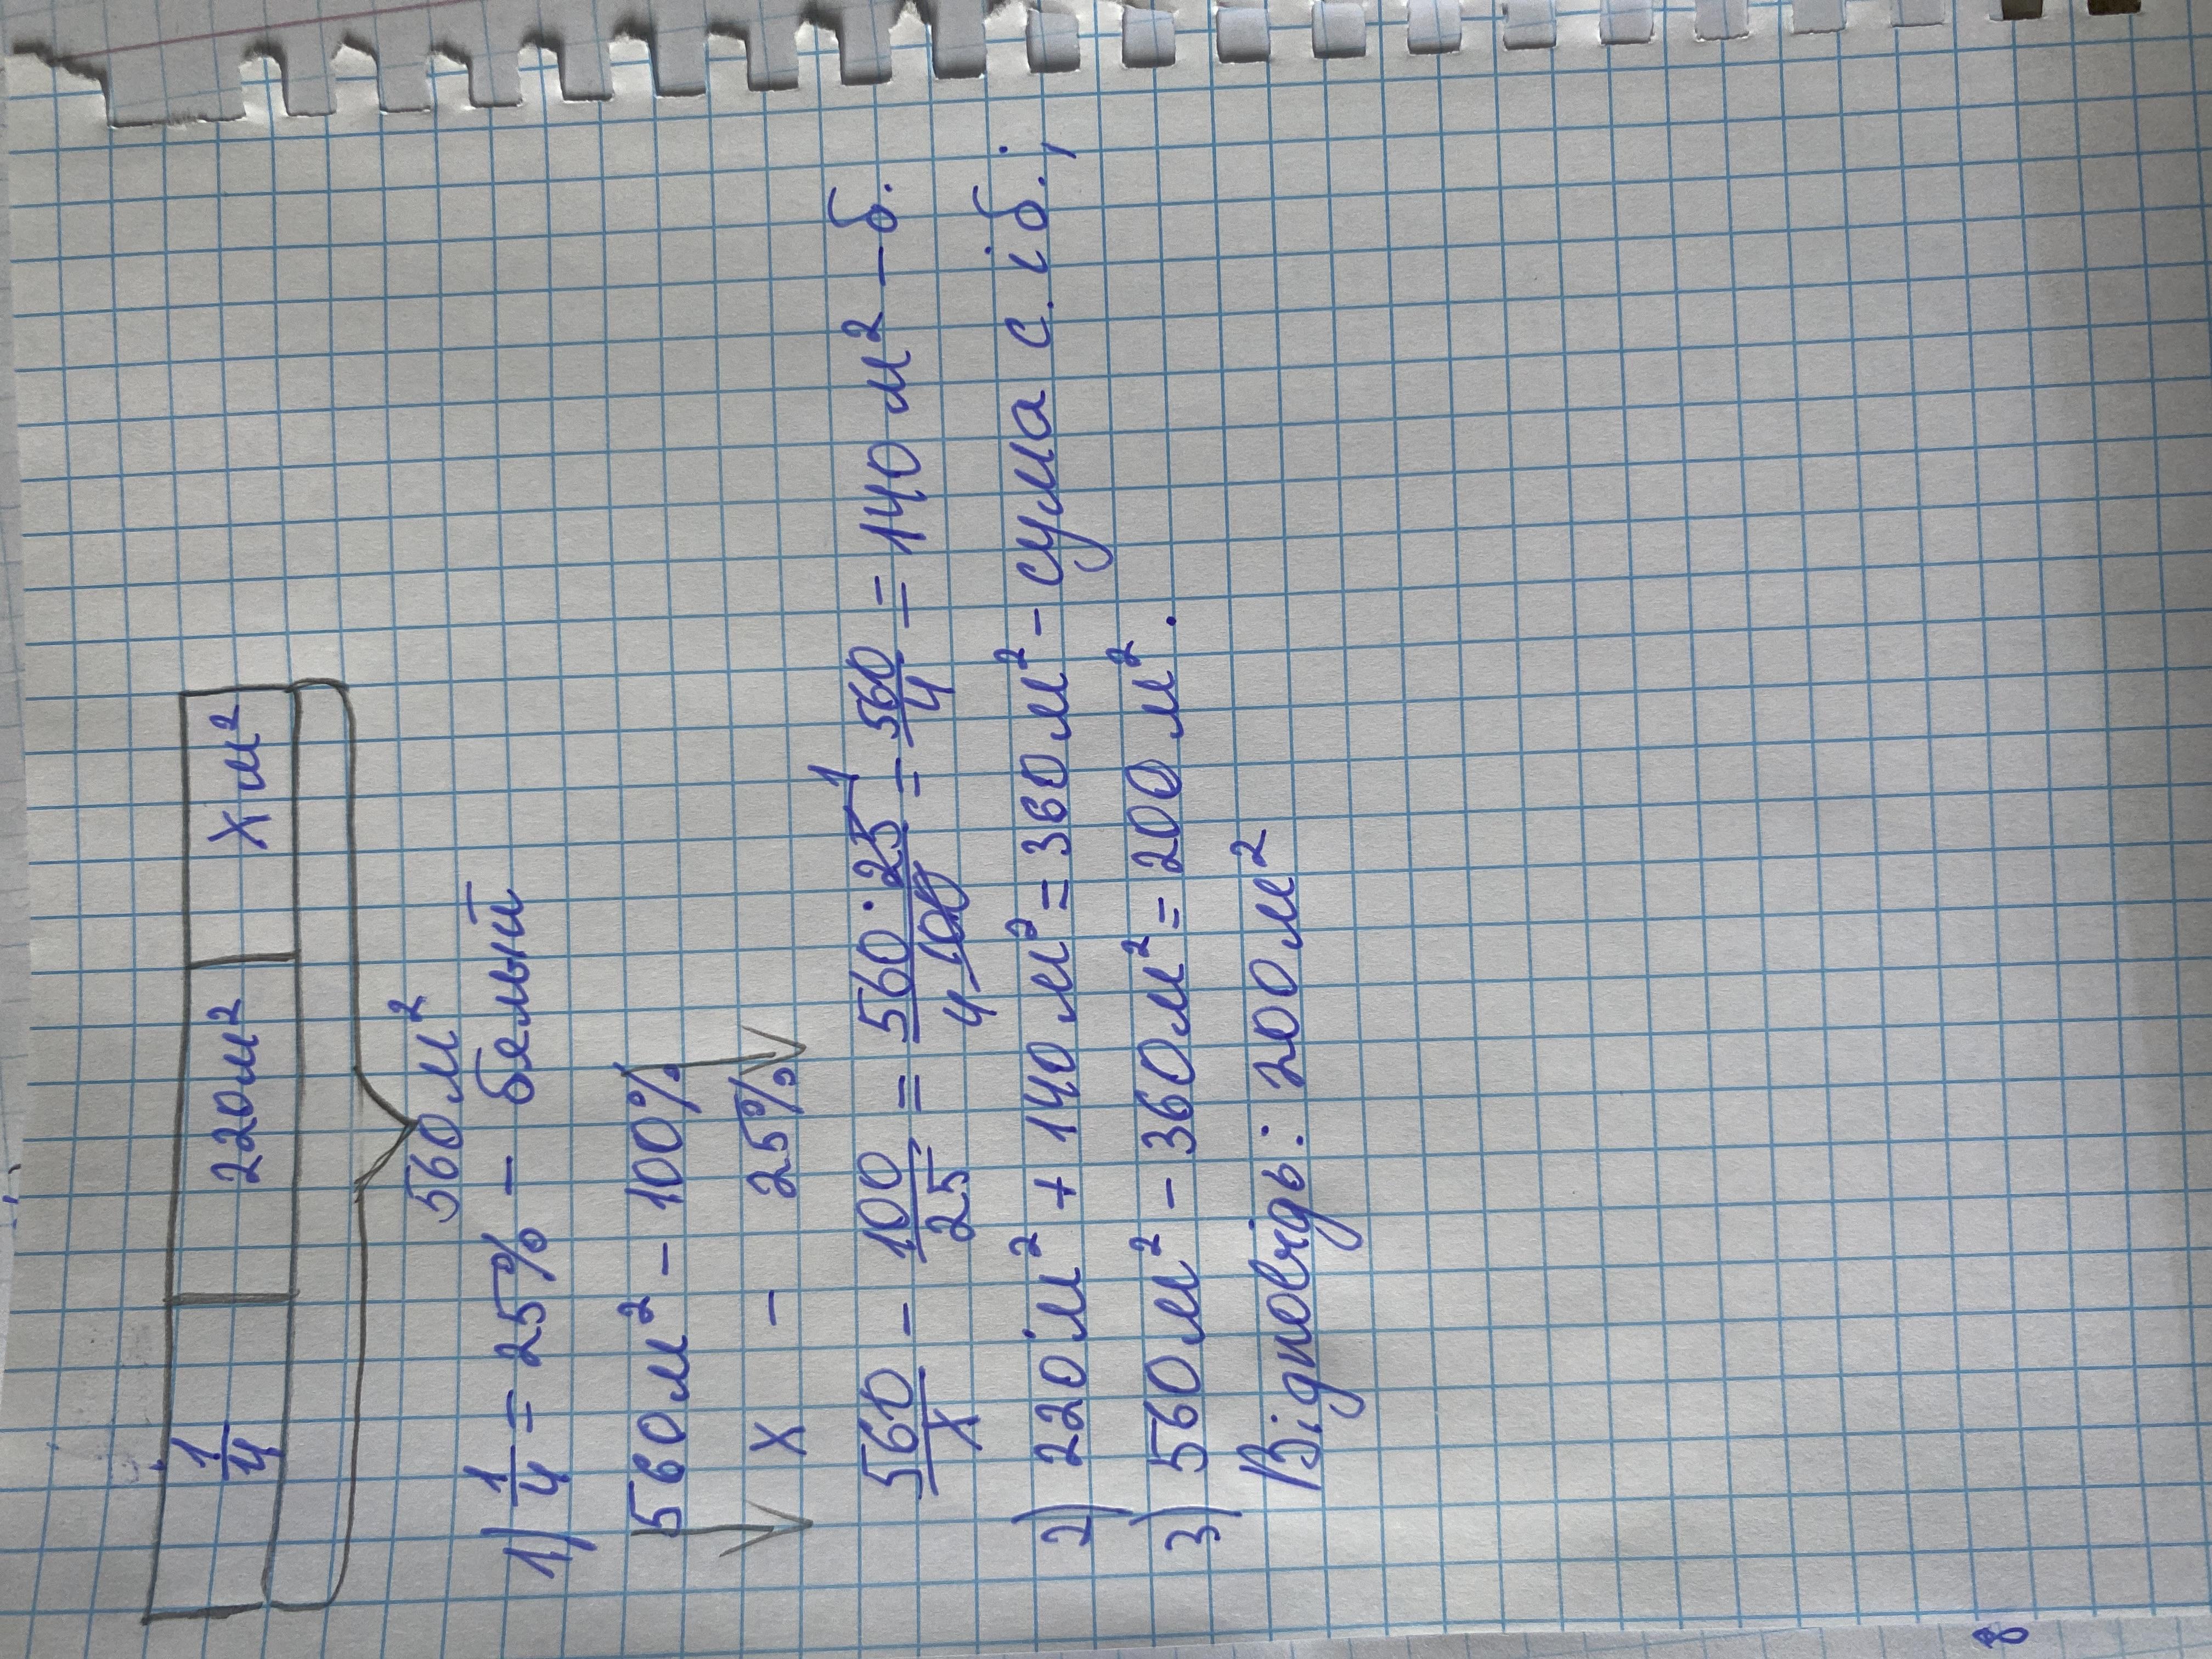 1/4 220м² х м²
560м²
1) 1/4 = 25% - белый
560м² - 100%
х - 25%
560/х - 100/25 = 560·25 1/4 100 = 560/4 = 140м² - б.
2) 220м² + 140м² = 360м² - сума с. і б.;
3) 560м² - 360м² = 200м².
Відповідь: 200м²
8